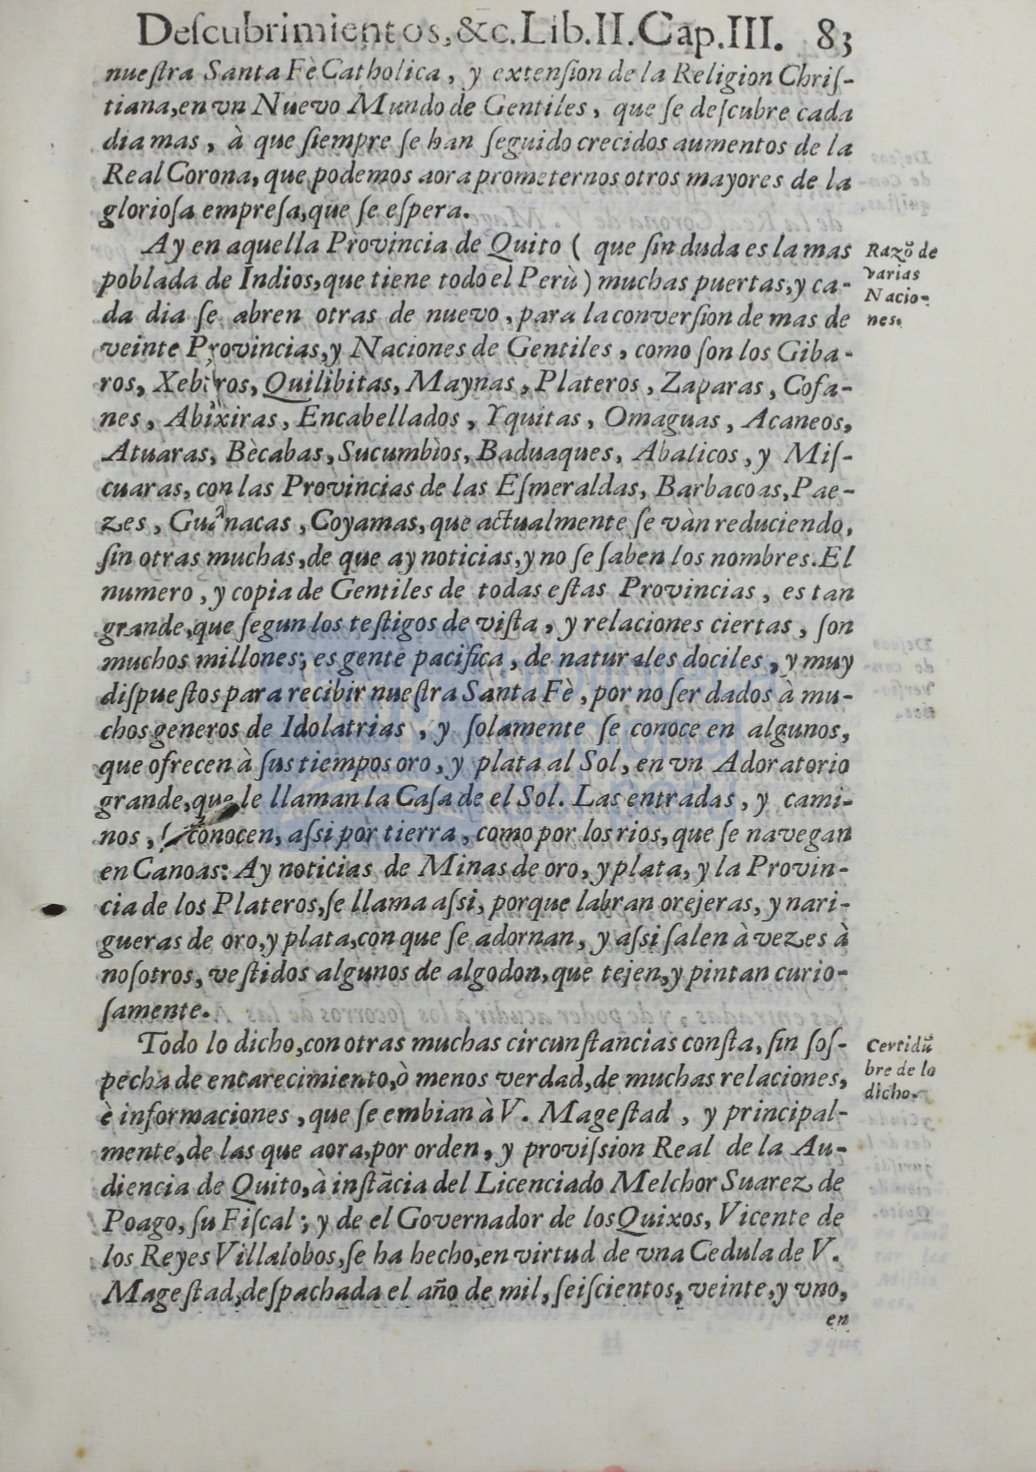 Deſcubrimientos, &c. Lib. II. Cap. III. 83
nueſtra Santa Fè Catholica, y extenſion de la Religion Chriſ-
tiana, en vn Nuevo Mundo de Gentiles, que ſe deſcubre cada
dia mas, à que ſiempre ſe han ſeguido crecidos aumentos de la
Real Corona, que podemos aora prometernos otros mayores de la
glorioſa empreſa, que ſe eſpera.
Ay en aquella Provincia de Quito ( que ſin duda es la mas
poblada de Indios, que tiene todo el Perù ) muchas puertas, y ca-
da dia ſe abren otras de nuevo, para la converſion de mas de
veinte Provincias, y Naciones de Gentiles, como ſon los Giba-
ros, Xebaros, Quilibitas, Maynas, Plateros, Zaparas, Cofa-
nes, Abixiras, Encabellados, Yquitas, Omaguas, Acaneos,
Atuaras, Bècabas, Sucumbìos, Baduaques, Abalicos, y Miſ-
cuaras, con las Provincias de las Eſmeraldas, Barbacoas, Pae-
zes, Guanacas, Coyamas, que actualmente ſe vàn reduciendo,
ſin otras muchas, de que ay noticias, y no ſe ſaben los nombres. El
numero, y copia de Gentiles de todas eſtas Provincias, es tan
grande, que ſegun los teſtigos de viſta, y relaciones ciertas, ſon
muchos millones; es gente pacifica, de naturales dociles, y muy
diſpueſtos para recibir nueſtra Santa Fè, por no ſer dados à mu-
chos generos de Idolatrias, y ſolamente ſe conoce en algunos,
que ofrecen à ſus tiempos oro, y plata al Sol, en vn Adoratorio
grande, que le llaman la Caſa de el Sol. Las entradas, y cami-
nos, conocen, aſsi por tierra, como por los rios, que ſe navegan
en Canoas: Ay noticias de Minas de oro, y plata, y la Provin-
cia de los Plateros, ſe llama aſsi, porque labran orejeras, y nari-
gueras de oro, y plata, con que ſe adornan, y aſsi ſalen à vezes à
noſotros, veſtidos algunos de algodon, que tejen, y pintan curio-
ſamente.
Todo lo dicho, con otras muchas circunſtancias conſta, ſin ſoſ-
pecha de encarecimiento, ò menos verdad, de muchas relaciones,
è informaciones, que ſe embian à V. Mageſtad, y principal-
mente, de las que aora, por orden, y proviſsion Real de la Au-
diencia de Quito, à inſtãcia del Licenciado Melchor Suarez de
Poago, ſu Fiſcal; y de el Governador de los Quixos, Vicente de
los Reyes Villalobos, ſe ha hecho, en virtud de vna Cedula de V.
Mageſtad, deſpachada el año de mil, ſeiſcientos, veinte, y vno,
en
Razõ de
varias
Nacio-
nes.
Certidũ
bre de lo
dicho.